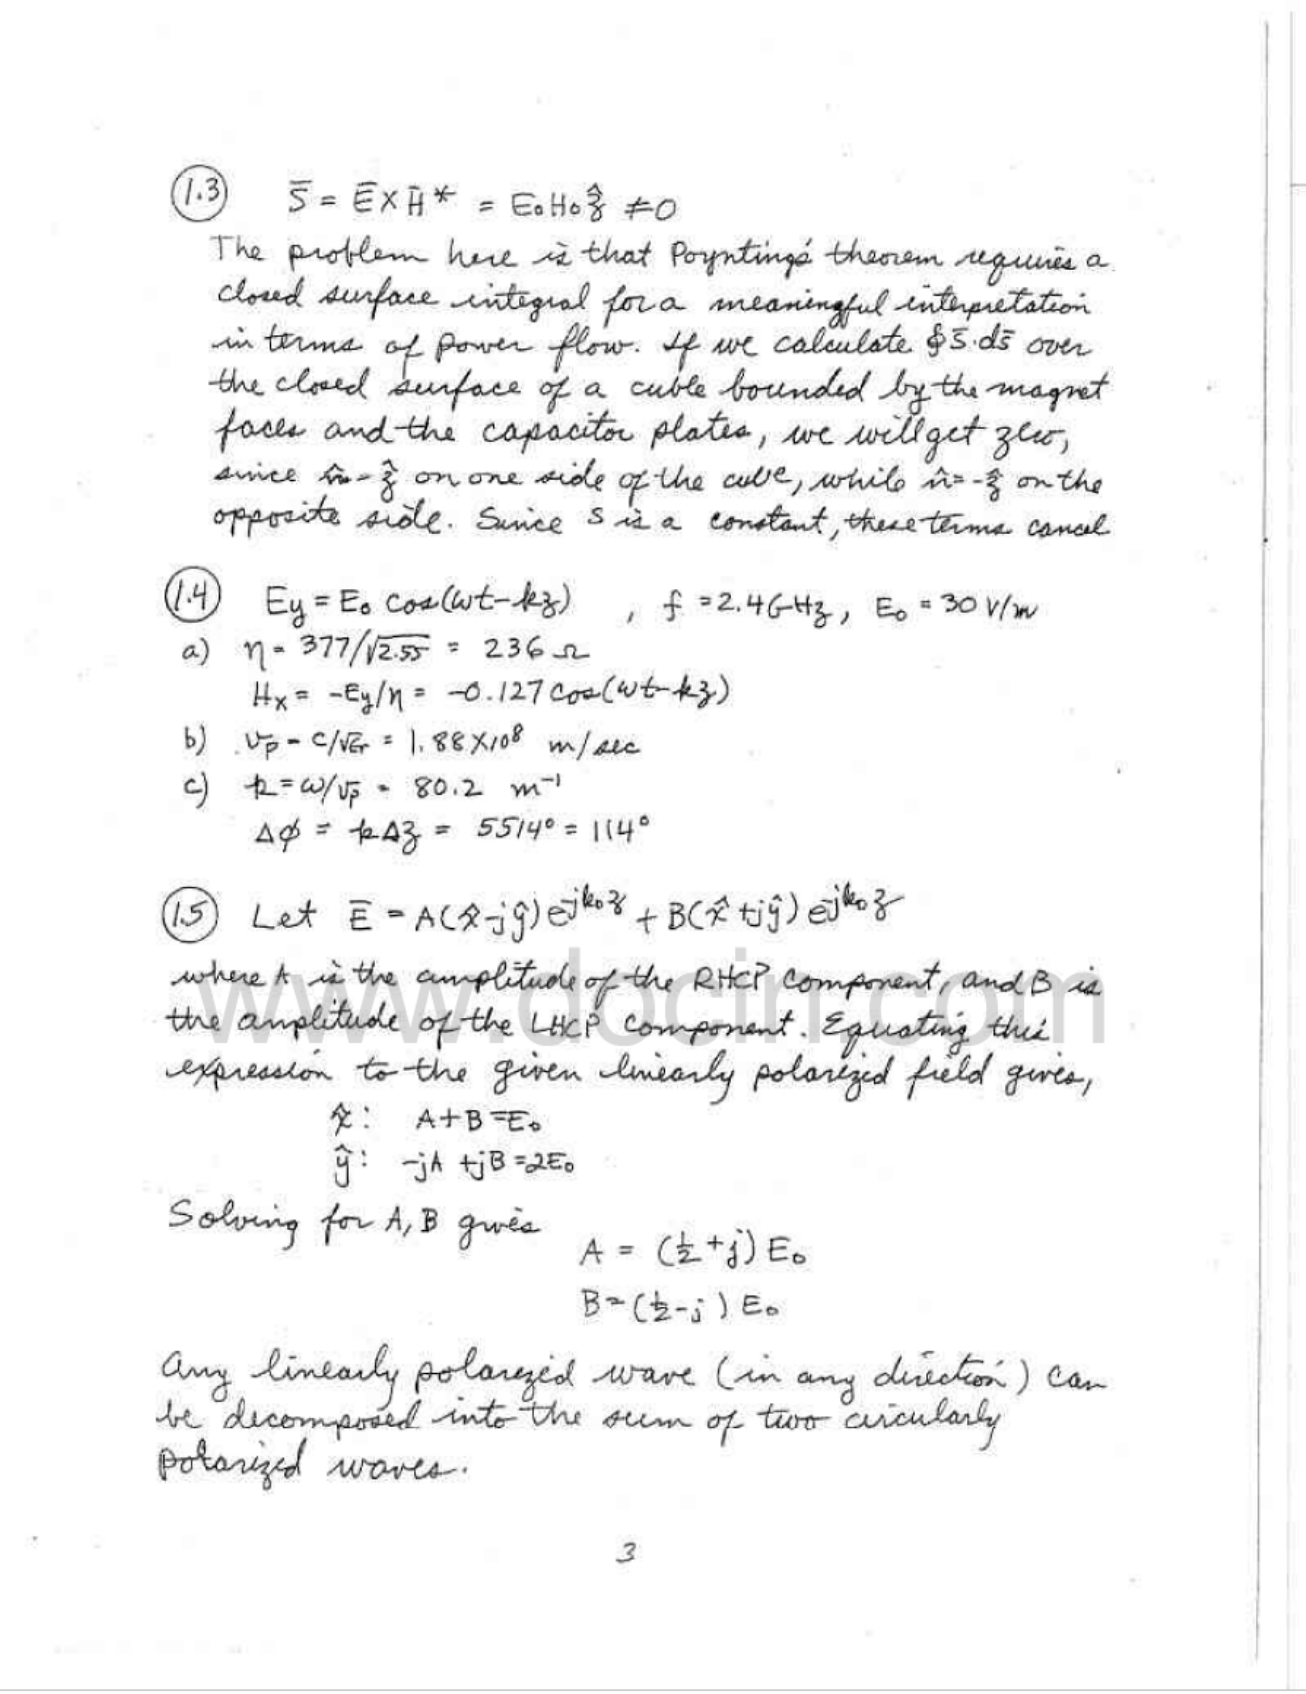 1.3 S̄ = Ē×H̄* = E₀H₀ẑ ≠0
The problem here is that Poynting's theorem requires a
closed surface integral for a meaningful interpretation
in terms of power flow. If we calculate ∮S̄·ds̄ over
the closed surface of a cube bounded by the magnet
faces and the capacitor plates, we will get zero,
since n̂=ẑ on one side of the cube, while n̂=-ẑ on the
opposite side. Since S is a constant, these terms cancel
1.4 Ey = E₀ cos(ωt-kz) , f = 2.4 GHz, E₀ = 30 V/m
a) η = 377/√2.55 = 236 Ω
Hx = -Ey/η = -0.127 cos(ωt-kz)
b) vp = c/√εr = 1.88×10⁸ m/sec
c) k = ω/vp = 80.2 m⁻¹
Δφ = kΔz = 5514° = 114°
1.5 Let Ē = A(x̂-jŷ)e^-jk₀z + B(x̂+jŷ)e^-jk₀z
where A is the amplitude of the RHCP component, and B is
www.docin.com
the amplitude of the LHCP component. Equating this
expression to the given linearly polarized field gives,
x̂: A+B=E₀
ŷ: -jA +jB=2E₀
Solving for A, B gives
A = (½+j) E₀
B=(½-j) E₀
Any linearly polarized wave (in any direction) can
be decomposed into the sum of two circularly
polarized waves.
3